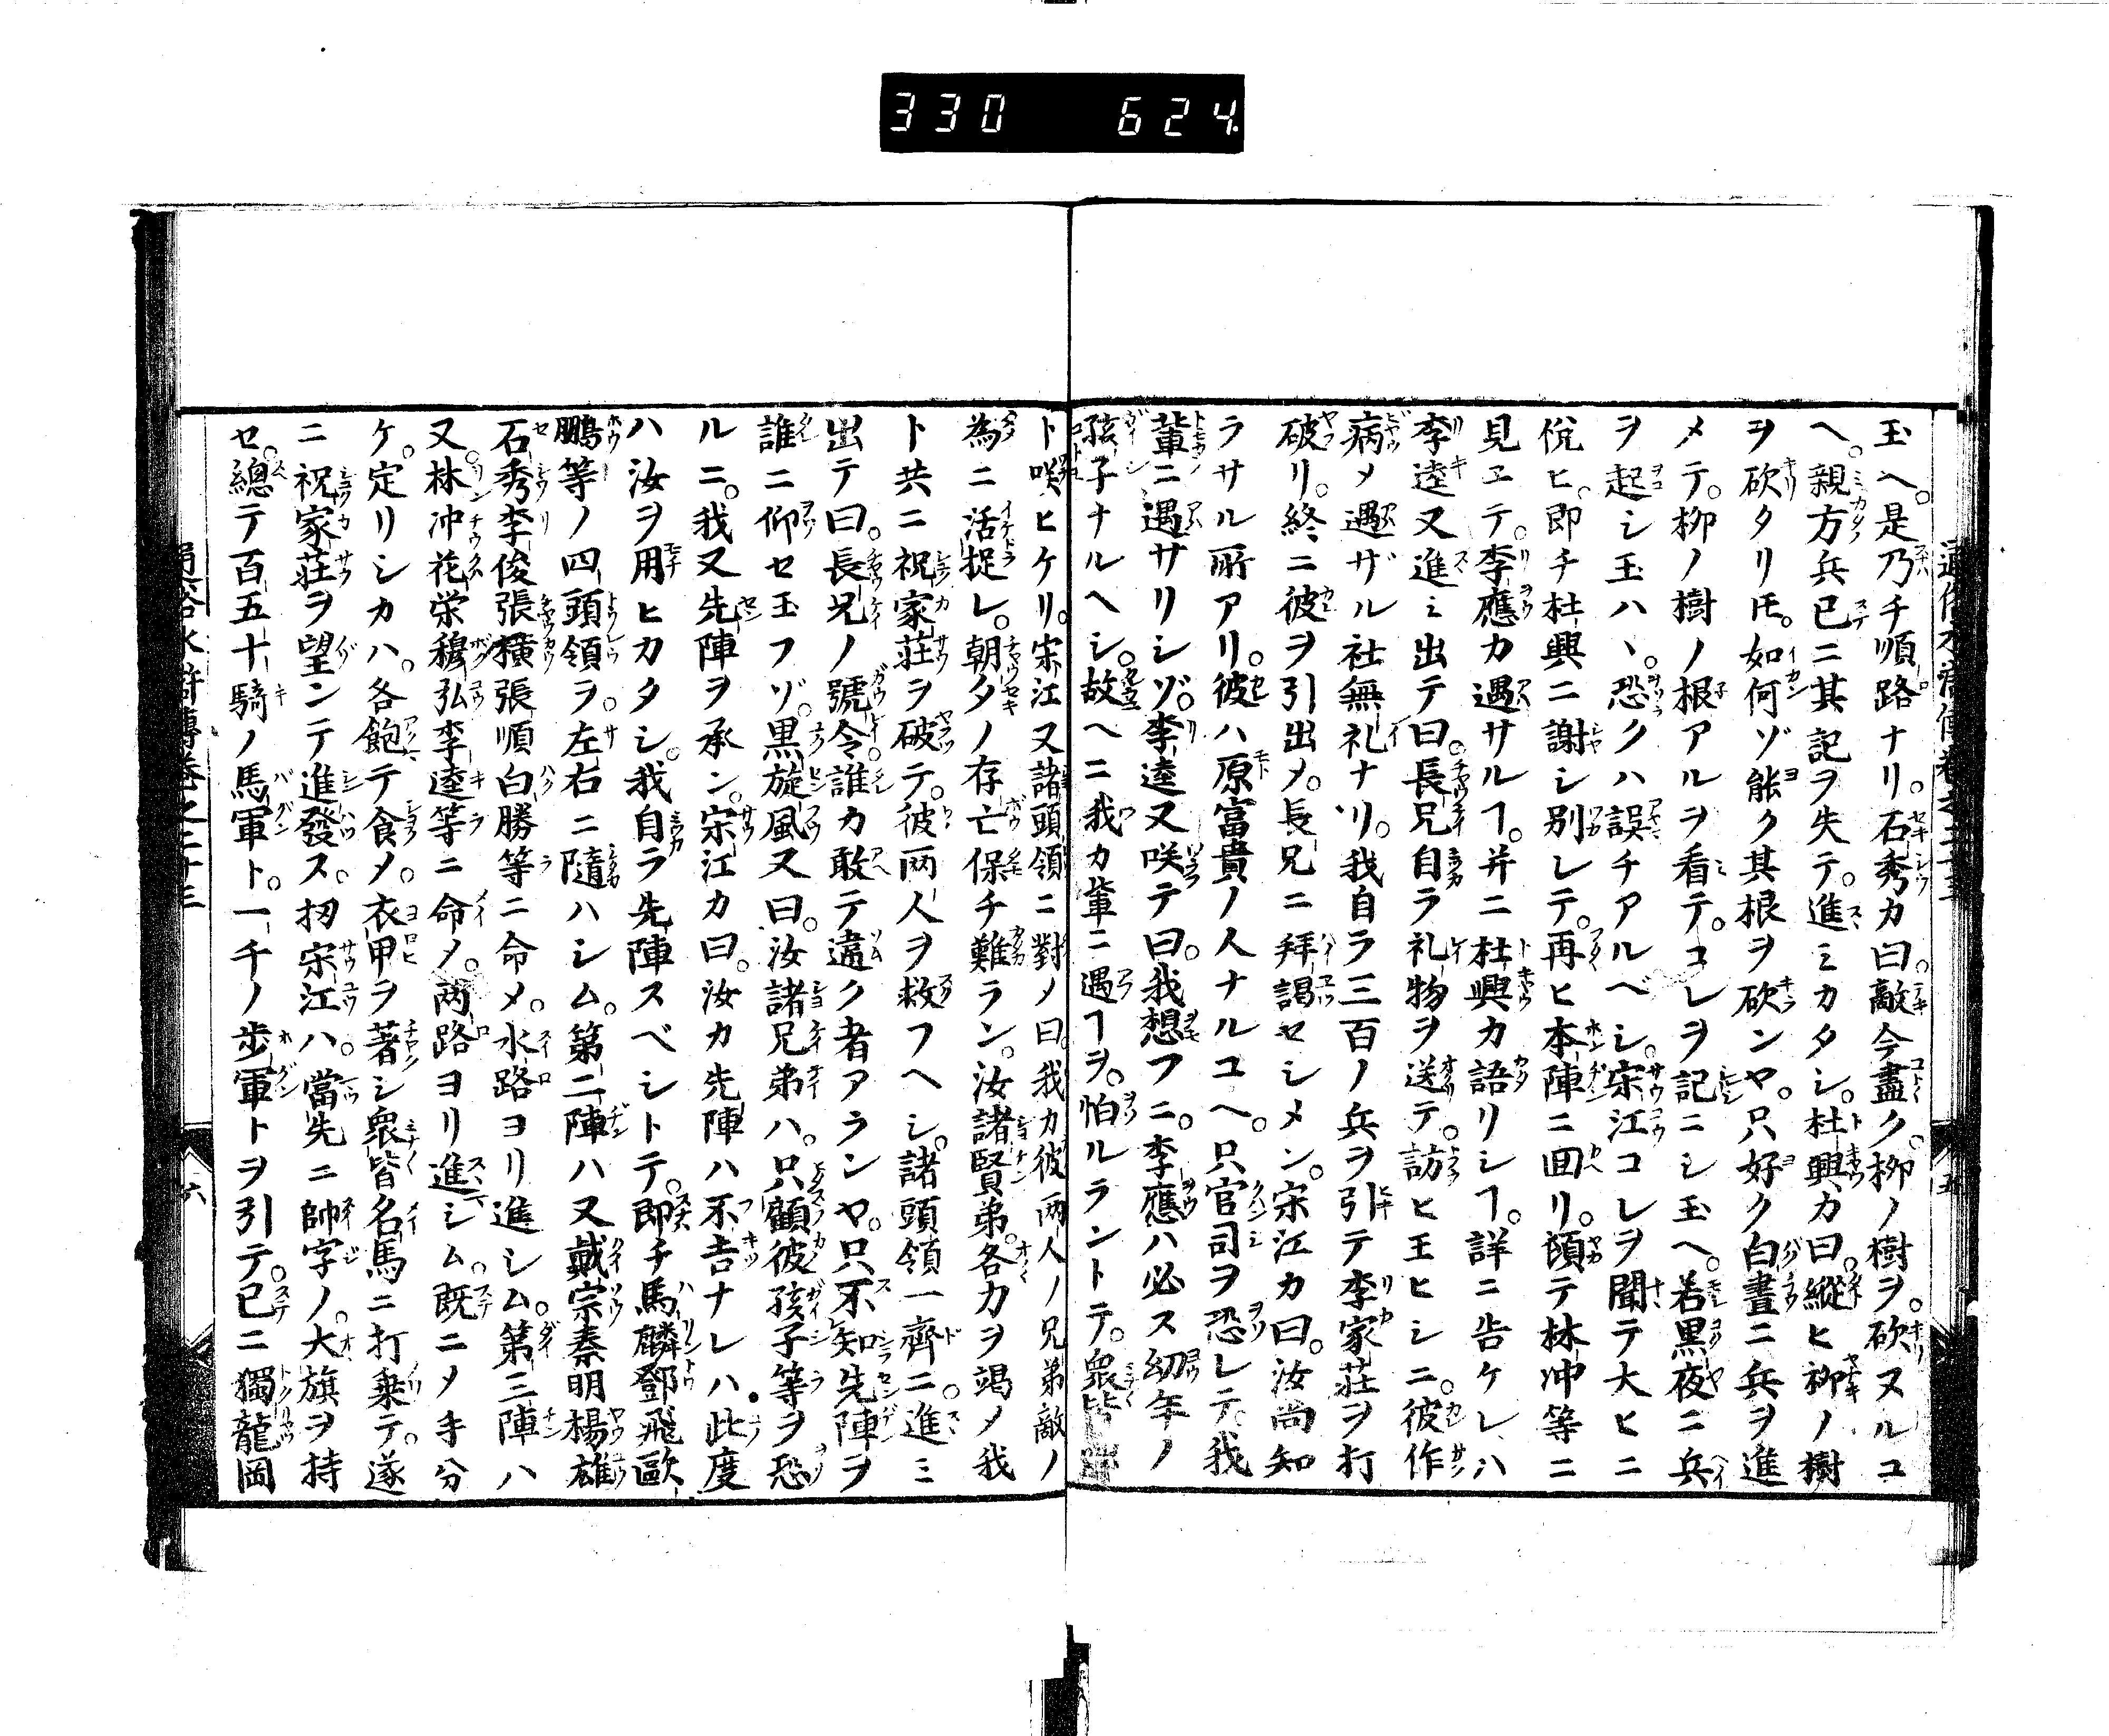 330 624
玉ヘ。是乃チ順路ナリ。石秀カ曰。敵今盡ク。柳ノ樹ヲ。砍ヌルコ
ヘ。親方兵已ニ其記ヲ失テ。進ミカタシ。杜興カ曰。縱ヒ柳ノ樹
ヲ砍タリ𪜈。如何ゾ能ク其根ヲ砍ンヤ。只好ク白晝ニ兵ヲ進
メテ。柳ノ樹ノ根アルヲ看テ。コレヲ記ニシ玉ヘ。若黒夜ニ兵
ヲ起シ玉ハヽ。恐クハ誤チアルベシ。宋江コレヲ聞テ大ヒニ
悅ヒ。即チ杜興ニ謝シ別レテ。再ヒ本陣ニ囬リ。頓テ林冲等ニ
見エテ。李應カ遇サルヿ。并ニ杜興カ語リシヿ。詳ニ告ケレハ
李逵又進ミ出テ曰。長兄自ラ礼物ヲ送テ。訪ヒ玉ヒシニ。彼作
病メ遇ザル社無礼ナリ。我自ラ三百ノ兵ヲ引テ李家莊ヲ打
破リ。終ニ彼ヲ引出メ。長兄ニ拜謁セシメン。宋江カ曰。汝尚知
ラサル所アリ。彼ハ原富貴ノ人ナルユヘ。只官司ヲ恐レテ。我
輩ニ遇サリシゾ。李逵又咲テ曰。我想フニ。李應ハ必ス幼年ノ
孩子ナルヘシ。故ヘニ我カ輩ニ遇ヿヲ。怕ルラントテ。衆皆
ト咲ヒケリ。宋江又諸頭領ニ對メ曰。我カ彼両人ノ兄弟敵ノ
為ニ活捉レ。朝タノ存亡保チ難ラン。汝諸賢弟。各カヲ竭メ我
ト共ニ祝家莊ヲ破テ。彼両人ヲ救フヘシ。諸頭領一齊ニ。進ミ
出テ曰。長兄ノ號令。誰カ敢テ違ク者アランヤ。只不知先陣ヲ
誰ニ仰セ玉フゾ。黒旋風又曰。汝諸兄弟ハ。只顧彼孩子等ヲ恐
ルニ。我又先陣ヲ承ン。宋江カ曰。汝カ先陣ハ不吉ナレハ。此度
ハ汝ヲ用ヒカタシ。我自ラ先陣スベシトテ。即チ馬麟鄧飛歐
鵬等ノ四頭領ヲ。左右ニ隨ハシム。第二陣ハ又戴宗秦明楊雄
石秀李俊張横張順白勝等ニ命メ。水路ヨリ進シム。第三陣ハ
又。林冲花栄穆弘李逵等ニ命メ。両路ヨリ進シム。既ニメ手分
ケ。定リシカハ。各飽テ食メ。衣甲ヲ著シ衆皆名馬ニ打乗テ。遂
ニ祝家莊ヲ望ンテ進發ス。扨宋江ハ。當先ニ帥字ノ。大旗ヲ持
セ。總テ百五十騎ノ馬軍ト。一千ノ歩軍トヲ引テ。已ニ獨龍岡
六